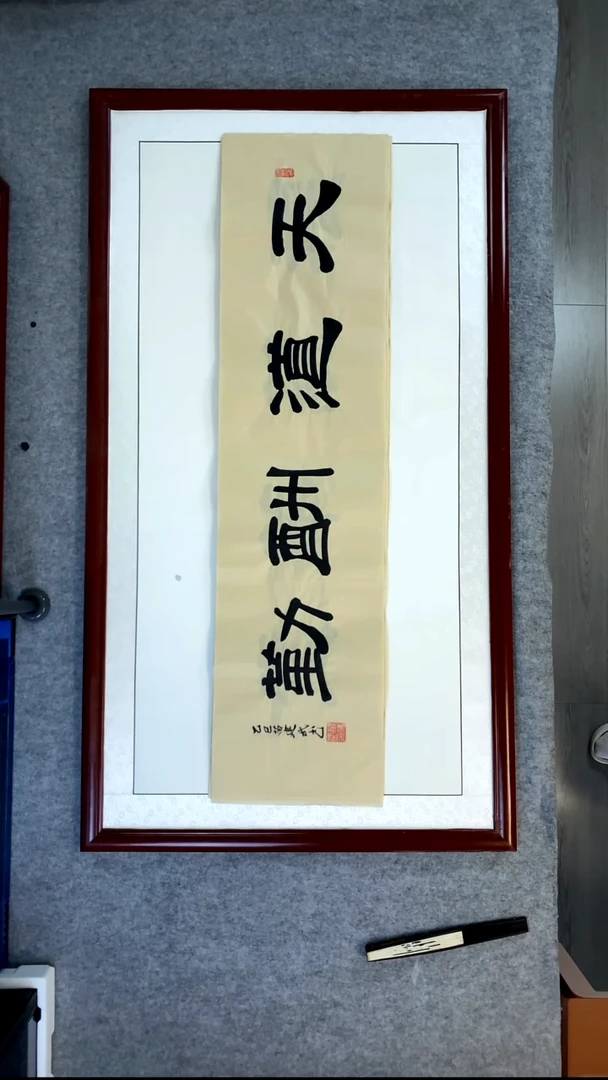 天道酬勤
乙巳